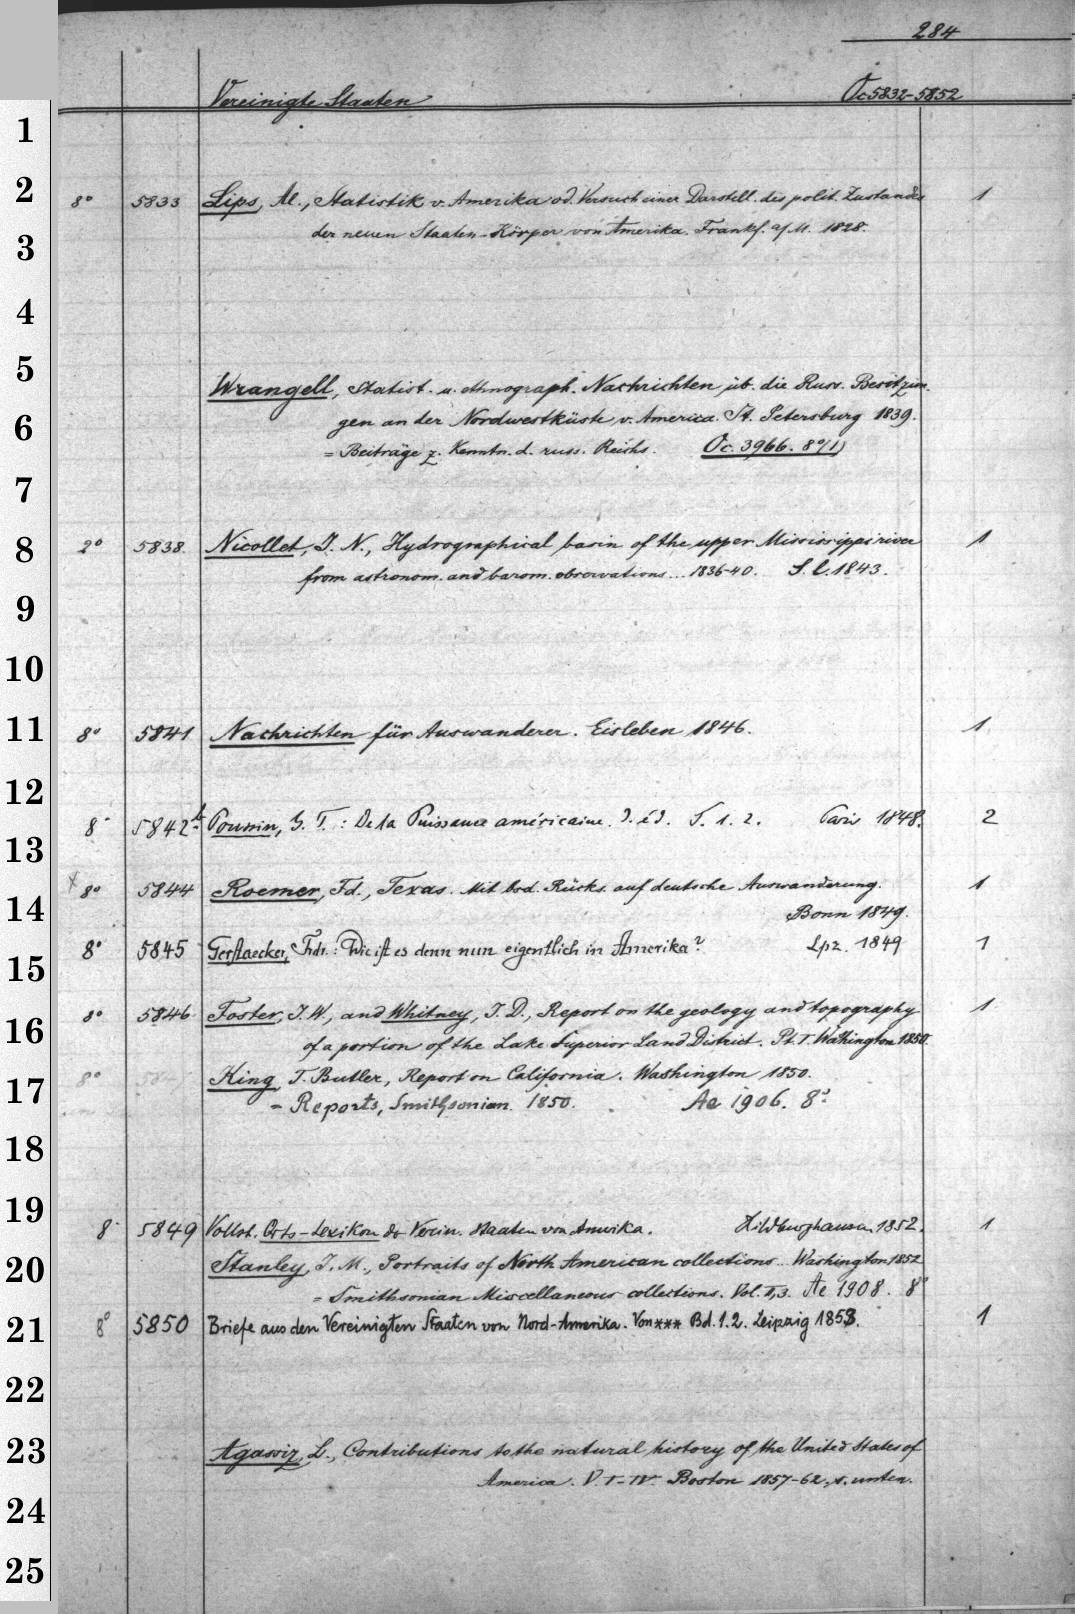 284
Vereinigte Staaten Oc 5832-5852
1
2 8° 5833 Lips, Al., Statistik v. Amerika od. Versuch einer Darstell. des polit. Zustandes 1
3 der neuen Staaten-Körper von Amerika. Frankf. a/M. 1828.
4
5 Wrangell, Statist. u. ethnograph. Nachrichten üb. die Russ. Besitzun-
6 gen an der Nordwestküste v. America. St. Petersburg 1839.
= Beiträge z. Kenntn. d. russ. Reichs. Oc. 3966. 8°/1)
7
8 2° 5838. Nicollet, J. N., Hydrographical basin of the upper Mississippi river 1
from astronom. and barom. observations... 1836-40. S. l. 1843.
9
10
11 8° 5841 Nachrichten für Auswanderer. Eisleben 1846. 1
12
13 8° 5842 b Poussin, G. T.: De la Puissance américaine. 3. éd. T. 1. 2. Paris 1848. 2
14 8° 5844 Roemer, Fd., Texas. Mit bsd. Rücks. auf deutsche Auswanderung. 1
Bonn 1849.
15 8° 5845 Gerstaecker, Frdr.: Wie ist es denn nun eigentlich in Amerika? Lpz. 1849 1
16 8° 5846 Foster, J. W., and Whitney, J. D., Report on the geology and topography 1
of a portion of the Lake Superior Land District. Pt. I. Washington 1850.
17 8° King, T. Butler, Report on California. Washington 1850.
= Reports, Smithsonian. 1850. Ae 1906. 8°
18
19 8° 5849 Vollst. Orts-Lexikon der Verein. Staaten von Amerika. Hildburghausen 1852. 1
20 Stanley, J. M., Portraits of North American collections... Washington 1852
= Smithsonian Miscellaneous collections. Vol. II,3. Ae 1908. 8°
21 8° 5850 Briefe aus den Vereinigten Staaten von Nord-Amerika. Von *** Bd. 1. 2. Leipzig 1853. 1
22
23 Agassiz, L., Contributions to the natural history of the United States of
America. V. I-IV. Boston 1857-62, s. unten.
24
25